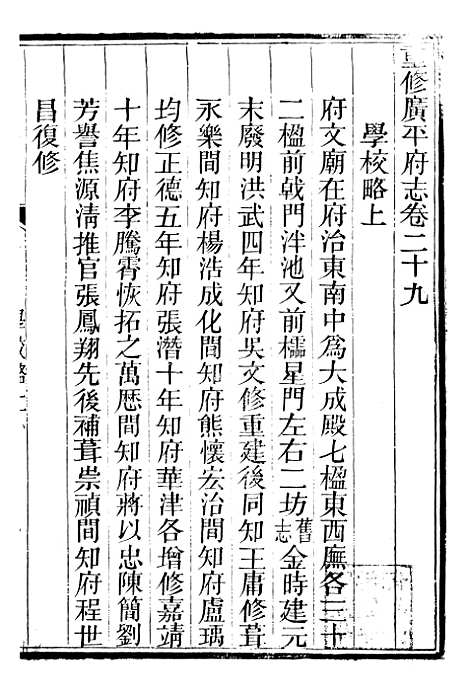 重修廣平府志卷二十九
學校略上
府文廟在府治東南中爲大成殿七楹東西廡各三十
二楹前戟門泮池又前櫺星門左右二坊舊志金時建元
末廢明洪武四年知府吳文修重建後同知王庸修葺
永樂間知府楊浩成化間知府熊懷宏治間知府盧瑀
均修正德五年知府張潛十年知府華津各增修嘉靖
十年知府李騰霄恢拓之萬厯間知府蔣以忠陳簡劉
芳譽焦源淸推官張鳳翔先後補葺崇禎間知府程世
昌復修